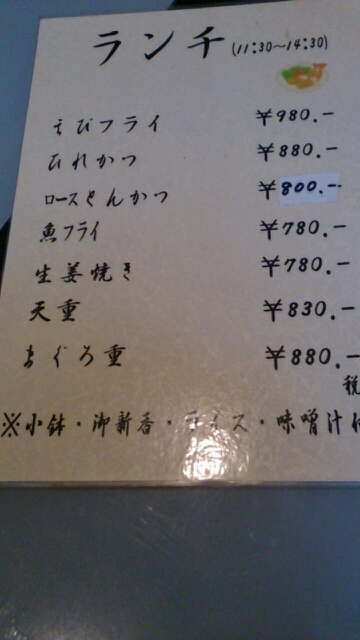 ランチ(11:30～14:30)
えびフライ ￥980.-
ひれかつ ￥880.-
ロースとんかつ ￥800.-
魚フライ ￥780.-
生姜焼き ￥780.-
天重 ￥830.-
まぐろ重 ￥880.-
税
※小鉢・御新香・ライス・味噌汁付